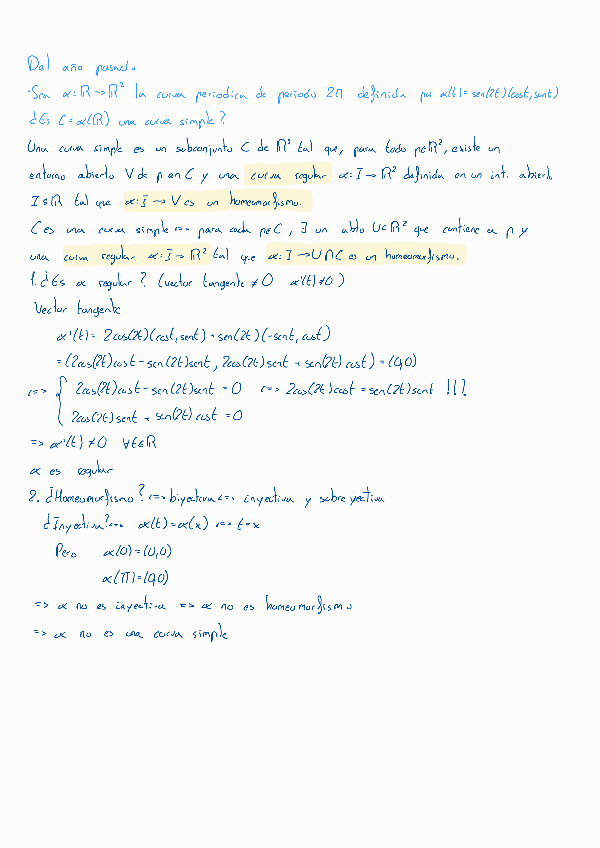 Del año pasado
·Sea α: ℝ→ℝ² la curva periodica de periodo 2π definida por α(t)= sen(2t)(cost, sent)
¿Es C=α(ℝ) una curva simple?
Una curva simple es un subconjunto C de ℝ² tal que, para todo p∈ℝ², existe un
entorno abierto V de p en C y una curva regular α: I→ℝ² definida en un int. abierto
I⊆ℝ tal que α: I→V es un homeomorfismo.
C es una curva simple <=> para cada p∈C, ∃ un abto U⊂ℝ² que contiene a p y
una curva regular α: I→ℝ² tal que α: I→U∩C es un homeomorfismo.
1. ¿Es α regular? (vector tangente ≠0 α'(t)≠0)
Vector tangente
α'(t)= 2cos(2t)(cost, sent) + sen(2t)(-sent, cost)
=(2cos(2t)cost - sen(2t)sent, 2cos(2t)sent + sen(2t)cost) = (0,0)
<=> { 2cos(2t)cost - sen(2t)sent = 0 <=> 2cos(2t)cost = sen(2t)sent !!!
2cos(2t)sent + sen(2t)cost = 0
=> α'(t)≠0 ∀t∈ℝ
α es regular
2. ¿Homeomorfismo? <=> biyectiva <=> inyectiva y sobreyectiva
¿Inyectiva? <=> α(t)=α(x) <=> t=x
Pero α(0)=(0,0)
α(π)=(0,0)
=> α no es inyectiva => α no es homeomorfismo
=> α no es una curva simple